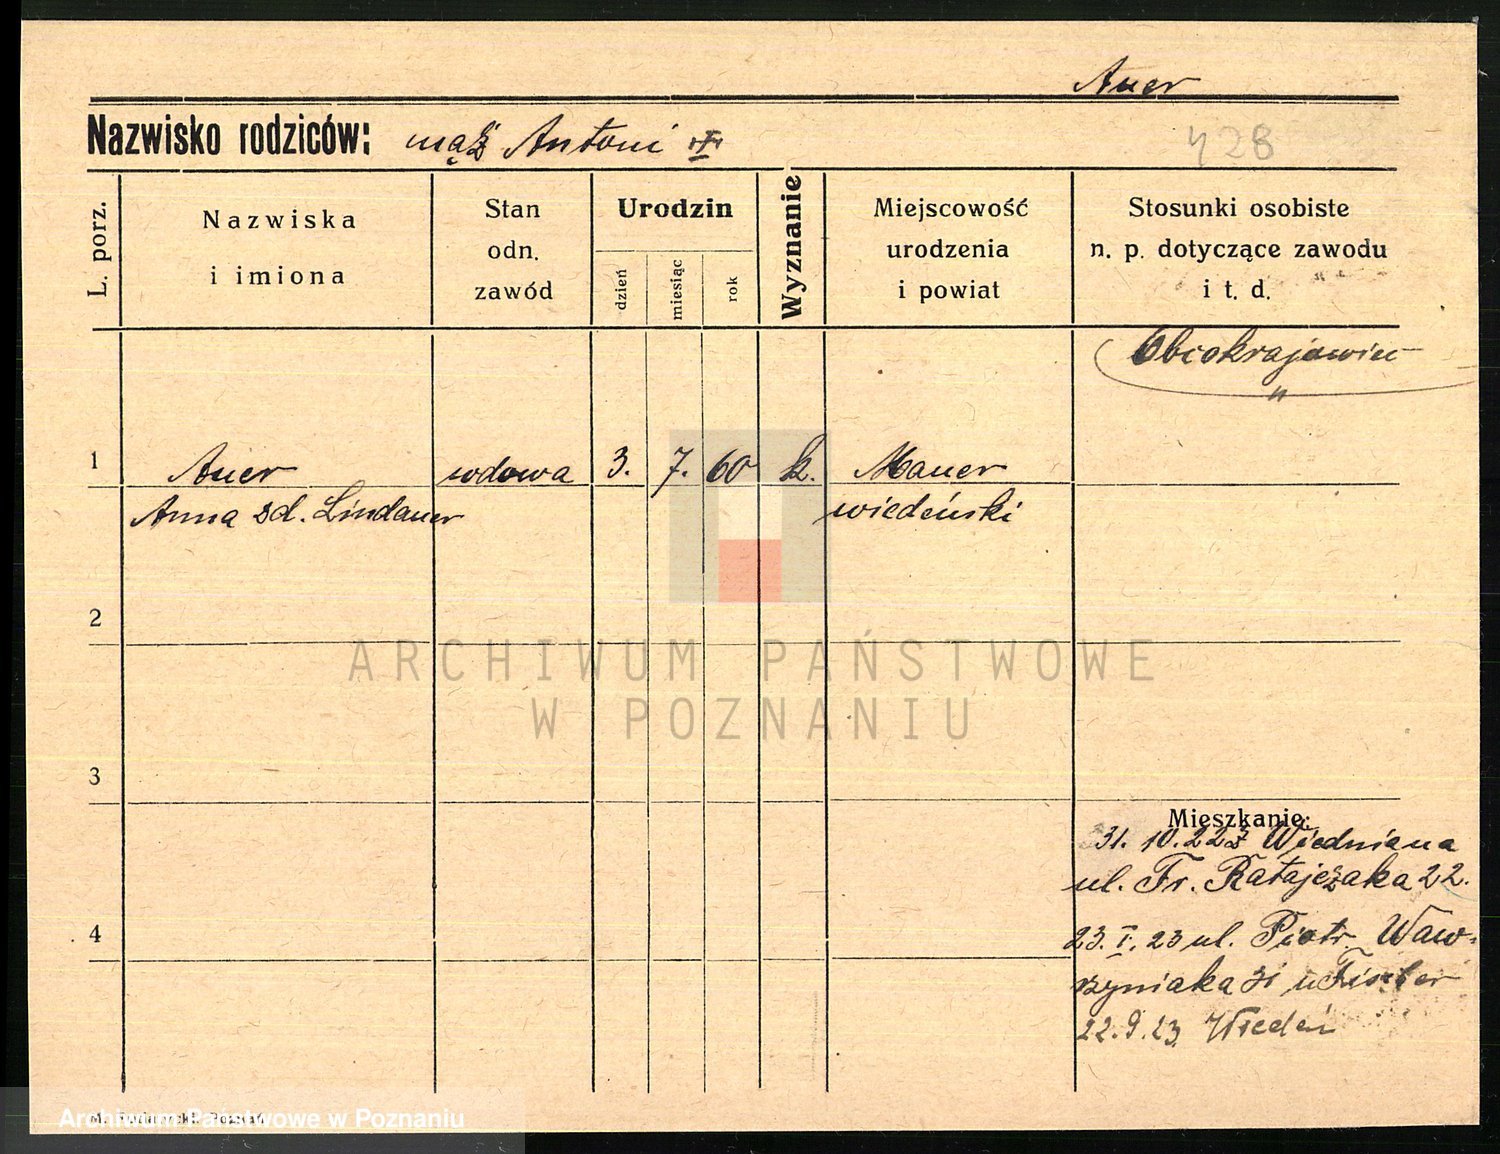 Auer
Nazwisko rodziców: mąż Antoni
428
L. porz.
Nazwiska
i imiona
Stan
odn.
zawód
Urodzin
dzień
miesiąc
rok
Wyznanie
Miejscowość
urodzenia
i powiat
Stosunki osobiste
n. p. dotyczące zawodu
i t. d.
Obcokrajowiec
1 Auer wdowa 3. 7. 60 k. Mauer
Anna zd. Lindauer wiedeński
2
ARCHIWUM PAŃSTWOWE
W POZNANIU
3
Mieszkanie:
31. 10. 22 z Wiednia na
ul. Fr. Ratajczaka 22.
4
23. I. 23 ul. Piotr. Waw-
rzyniaka 31 u Fischer
22. 9. 23 Wiedeń
Archiwum Państwowe w Poznaniu